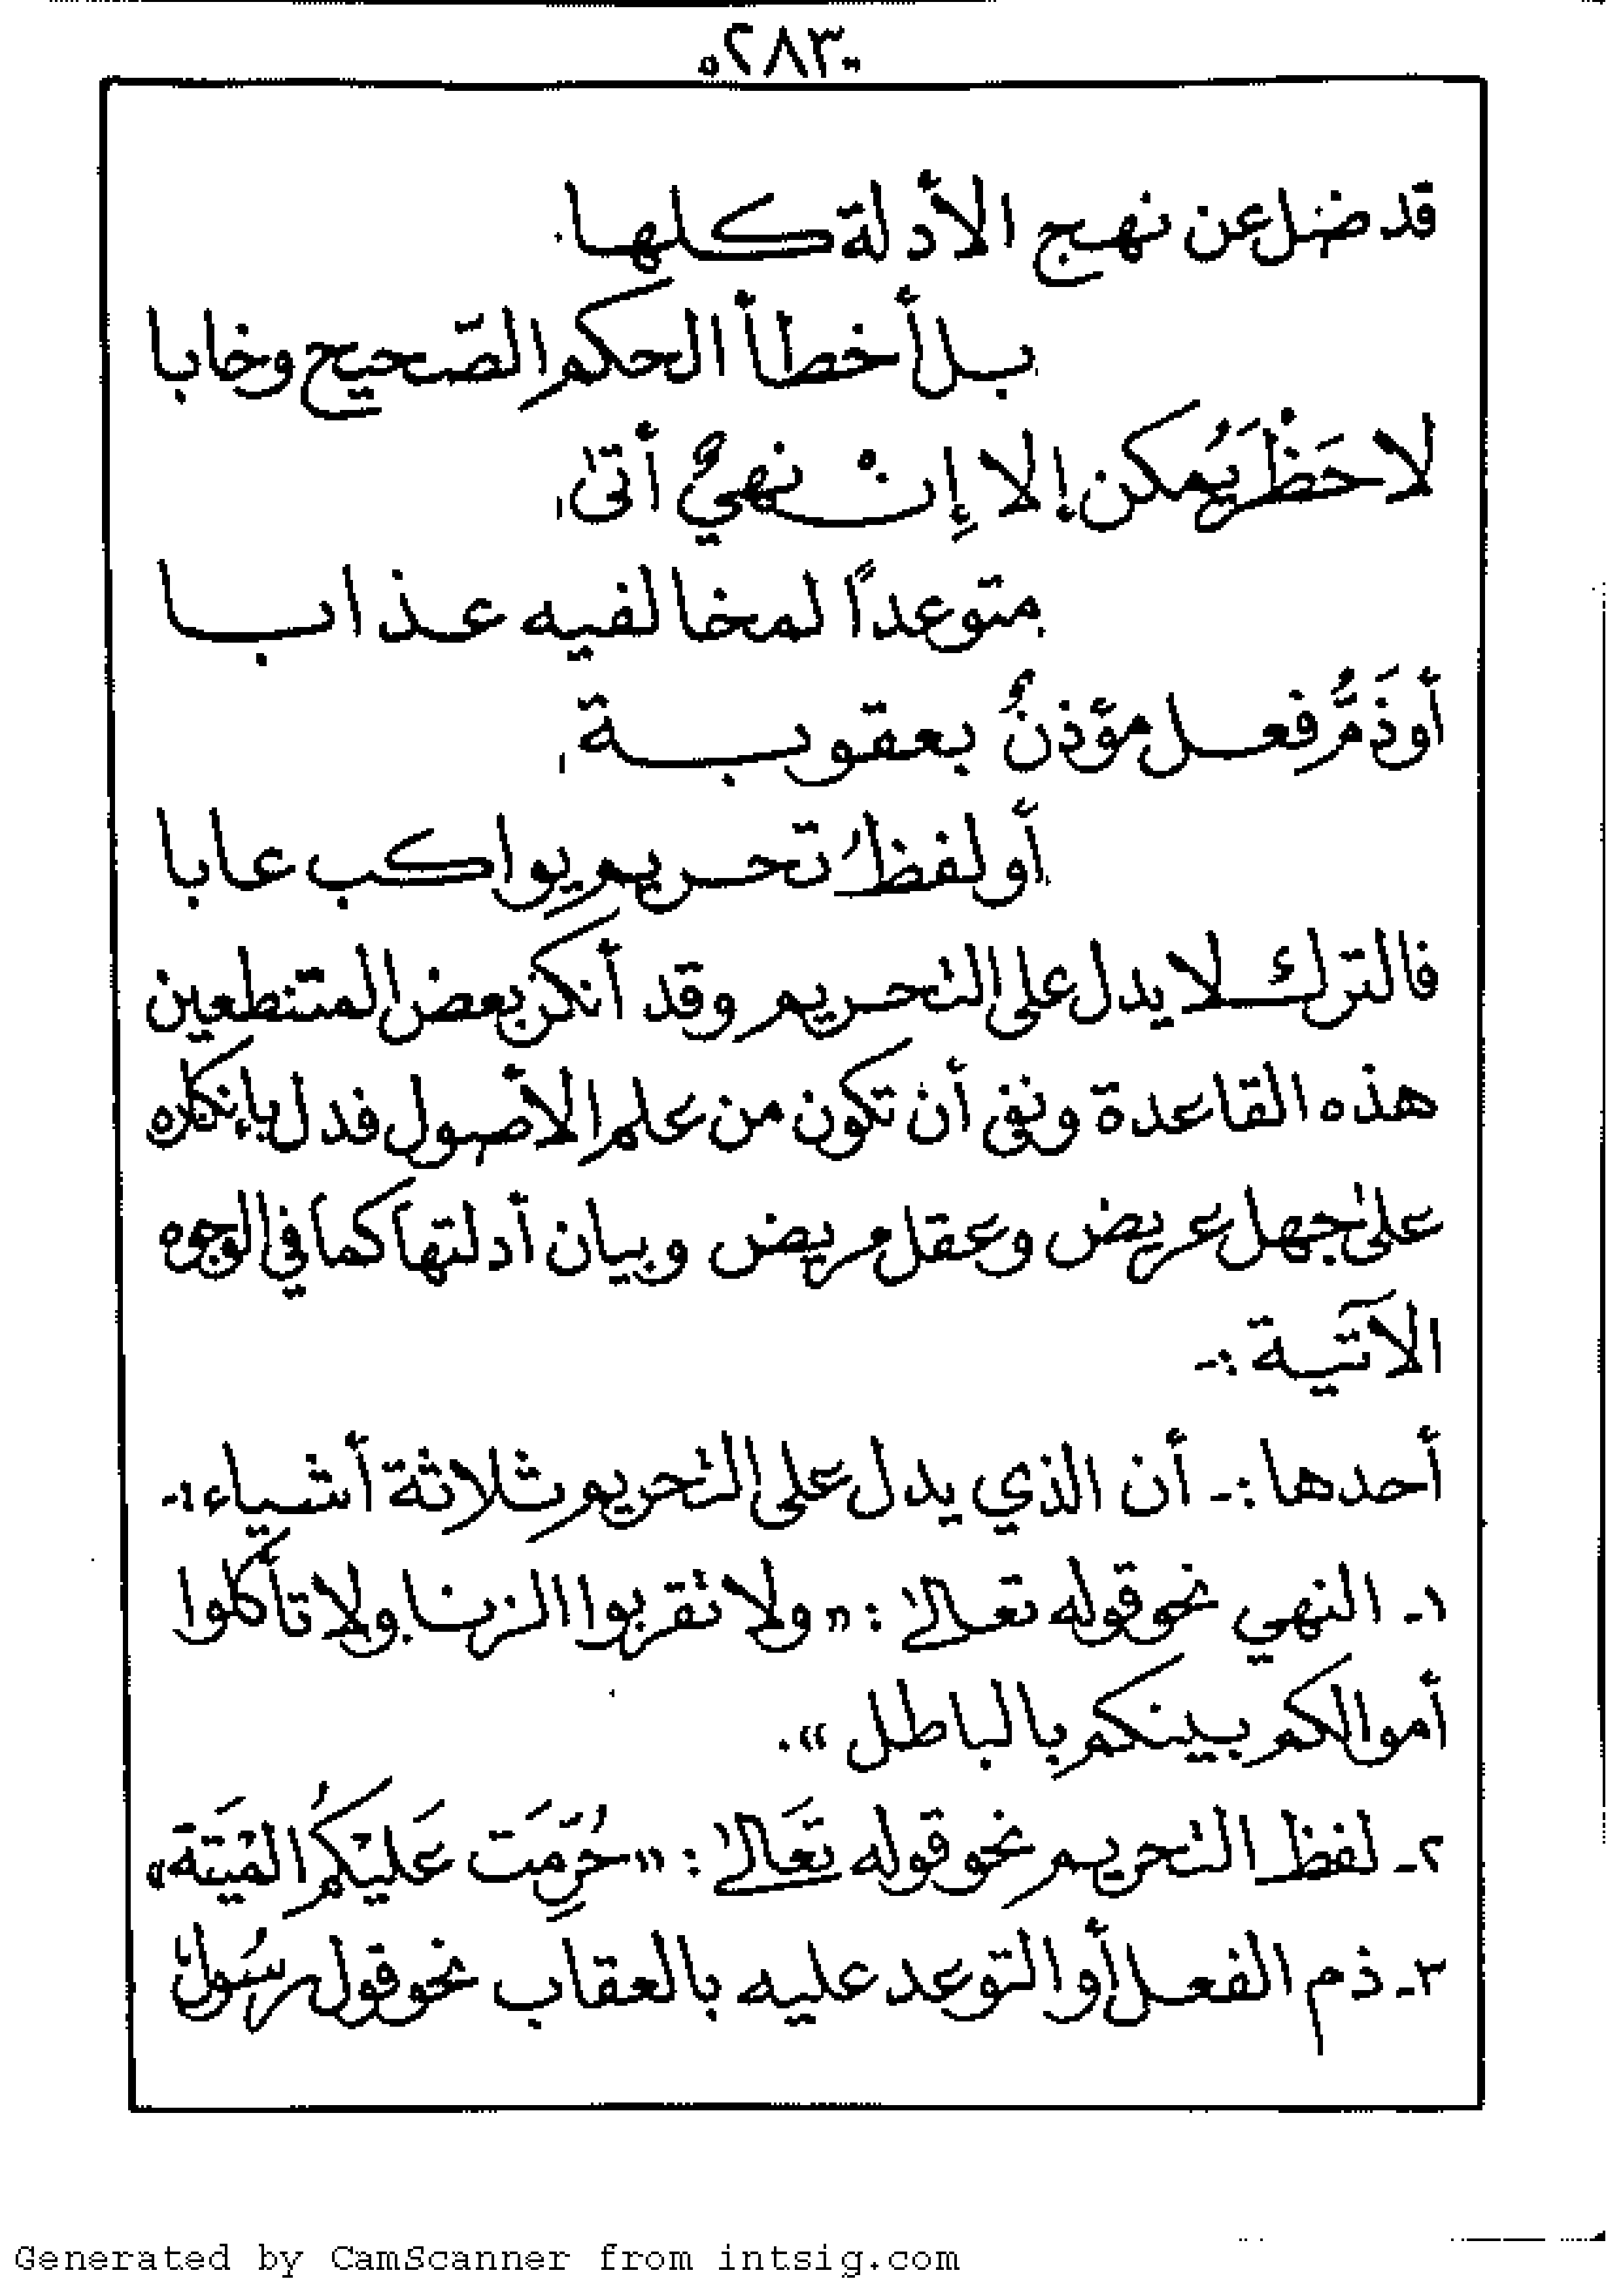 ٢٨٣
قد ضل عن نهج الأدلة كلها
بل أخطأ الحكم الصّحيح وخابا
لا حَظْرَ يُمكن إلا إنْ نهيٌ أتىٰ
متوعداً لمخالفيه عذابا
أو ذَمُّ فعل مؤذنٌ بعقوبة
أو لفظُ تحريم يواكب عابا
فالترك لا يدل على التحريم وقد أنكر بعض المتنطعين
هذه القاعدة ونفى أن تكون من علم الأصول فدل بإنكاره
علىٰ جهل عريض وعقل مريض وبيان أدلتها كما في الوجوه
الآتية :-
أحدها :- أن الذي يدل على التحريم ثلاثة أشياء :-
١- النهي نحو قوله تعالىٰ : «ولا تقربوا الزنا ولا تأكلوا
أموالكم بينكم بالباطل» .
٢- لفظ التحريم نحو قوله تَعَالىٰ : «حُرِّمَت عَلَيْكُم المَيْتَة»
٣- ذم الفعل أو التوعد عليه بالعقاب نحو قول رسُول
Generated by CamScanner from intsig.com